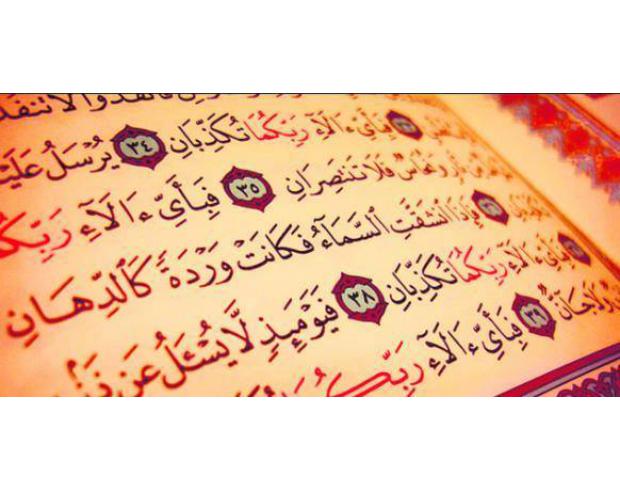 لَا تَنفُذُ
فَبِأَيِّ ءَالَآءِ رَبِّكُمَا تُكَذِّبَانِ ٣٤ يُرْسَلُ عَلَيْ
وَنُحَاسٌ فَلَا تَنتَصِرَانِ ٣٥ فَبِأَيِّ ءَالَآءِ رَبِّكُ
فَإِذَا ٱنشَقَّتِ ٱلسَّمَآءُ فَكَانَتْ وَرْدَةً كَٱلدِّهَانِ
فَبِأَيِّ ءَالَآءِ رَبِّكُمَا تُكَذِّبَانِ ٣٨ فَيَوْمَئِذٍ لَّا يُسْـَٔلُ عَن ذَن
وَلَا جَآنٌّ ٣٩ فَبِأَيِّ ءَالَآءِ رَبِّكُمَا